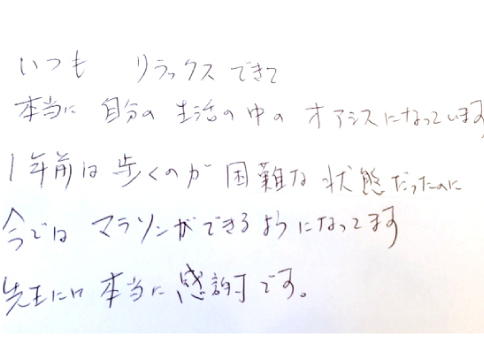 いつも リラックスできて
本当に 自分の生活の中のオアシスになっています
1年前は歩くのが困難な状態だったのに
今ではマラソンができるようになってます
先生には本当に感謝です。